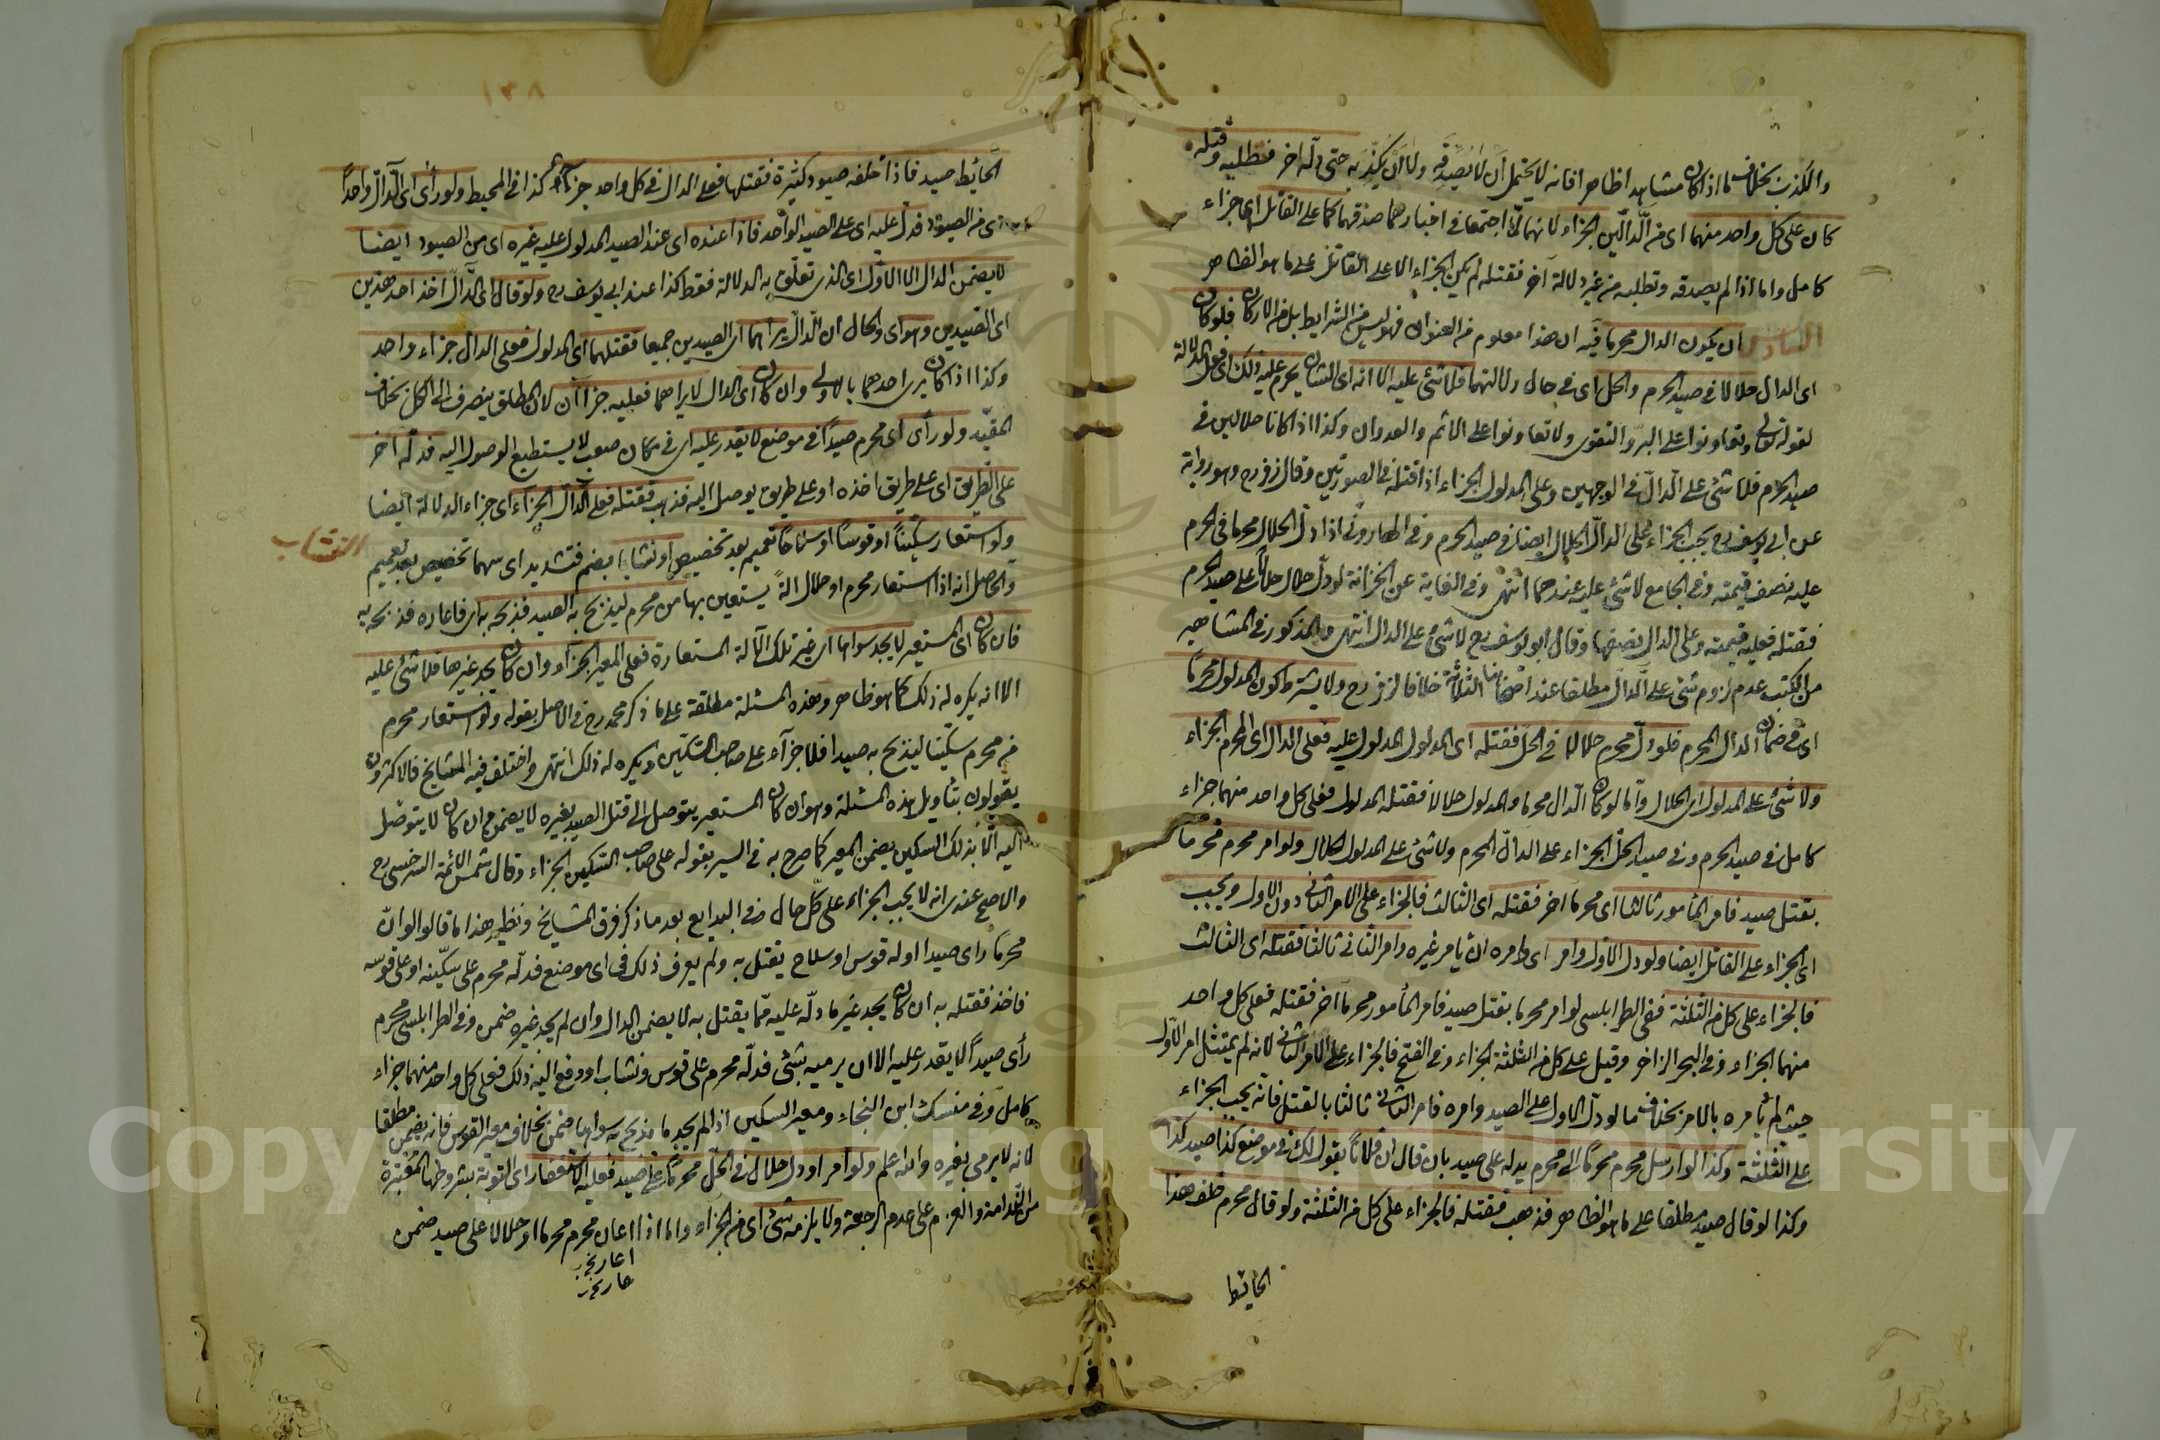 والكذب بخلاف ما اذا كان مشاهدا ظاهرا فانه لا يحتمل ان لا يصدقه ولا ان يكذبه حتى دله اخر فطلبه وقتله
كان على كل واحد منهما اى من الدالين الجزاء لانهما لما اجتمعا في اخبارهما صدقهما كما على القاتل اى جزاء
كامل واما اذا لم يصدقه وتطلبه من غير دلالة آخر فقتله لم يكن الجزاء الا على القاتل على ما هو الظاهر
السادس ان يكون الدال محرما فيه ان هذا معلوم من العنوان فهو ليس من الشرايط بل من الاركان فلو كان
اى الدال حلالا في صيد الحرم والحل اى في حال دلالتهما فلا شئ عليه الا انه اى الشان يحرم عليه ذلك اى فعل الدلالة
لقوله تعالى وتعاونوا على البر والتقوى ولا تعاونوا على الاثم والعدوان وكذا اذا كانا حلالين في
صيد الحرم فلا شئ على الدال في الوجهين وعلى المدلول الجزاء اذا قتله في الصورتين وقال زفر رح وهو رواية
عن ابي يوسف رح يجب الجزاء على الدال الحلال ايضا في صيد الحرم وفي الطحاروني اذا دل الحلال محرما في الحرم
عليه نصف قيمته وفي الجامع لا شئ عليه عندهما انتهى وفي الغاية عن الخزانة لو دل حلال حلالا على صيد الحرم
فقتله فعليه قيمته وعلى الدال نصفها وقال ابو يوسف رح لا شئ على الدال انتهى والمذكور في المشاهير
من الكتب عدم لزوم شئ على الدال مطلقا عند اصحابنا الثلاثة خلافا لزفر رح ولا يشترط كون المدلول محرما
اى في ضمان الدال المحرم فلو دل محرم حلالا في الحل فقتله اى المدلول المدلول عليه فعلى الدال اى المحرم الجزاء
ولا شئ على المدلول اى الحلال واما لو كان الدال محرما والمدلول حلالا فقتله المدلول فعلى كل واحد منهما جزاء
كامل في صيد الحرم وفي صيد الحل الجزاء على الدال المحرم ولا شئ على المدلول الحلال ولو امر محرم محرما
بقتل صيد فامر المأمور ثالثا اى محرما اخر فقتله اى الثالث فالجزاء على الامر الثاني دون الاول ويجب
اى الجزاء على القاتل ايضا ولو دل الاول وامر اى ان يامر غيره وامر الثاني ثالثا فقتله اى الثالث
فالجزاء على كل من الثلثة ففى الطرابلسى لو امر محرما بقتل صيد فامر المأمور محرما آخر فقتله فعلى كل واحد
منهما الجزاء وفي البحر الزاخر وقيل على كل من الثلثة الجزاء وفي الفتح فالجزاء على الامر الثاني لانه لم يمتثل امر الاول
حيث لم يامره بالامر بخلاف ما لو دل الاول على الصيد وامره فامر الثاني ثالثا بالقتل فانه يجب الجزاء
على الثلثة وكذا لو ارسل محرم محرما الى محرم يدله على صيد بان قال ان فلانا يقول لك في موضع كذا صيد كذا
وكذا لو قال صيد مطلقا على ما هو الظاهر فذهب فقتله فالجزاء على كل من الثلثة ولو قال محرم خلف هذا
الحائط
١٣٨
الحائط صيد فاذا خلفه صيود كثيرة فقتلها فعلى الدال في كل واحد جزاء كذا في المحيط ولو رأى اى الدال واحدا
اى من الصيود فدل عليه اى على الصيد الواحد فاذا عنده اى عند الصيد المدلول عليه غيره اى من الصيود ايضا
لا يضمن الدال الا الاول اى الذى تعلق به الدلالة فقط كذا عند ابي يوسف رح ولو قال اى الدال خذ احد هذين
اى الصيدين وهو اى والحال ان الدال يراهما اى الصيدين جميعا فقتلهما اى المدلول فعلى الدال جزاء واحد
وكذا اذا كان يرى احدهما بالاولى وان كان اى الدال لا يراهما فعليه جزاآن لان المطلق ينصرف الى الكل بخلاف
المقيد ولو رأى اى محرم صيدا في موضع لا يقدر عليه اى في مكان صعب لا يستطيع الوصول اليه فدله آخر
على الطريق اى على طريق اخذه او على طريق يوصل اليه فذهب فقتله فعلى الدال الجزاء اى جزاء الدلالة ايضا
ولو استعار سكينا او قوسا او سلاحا تعميم بعد تخصيص او نشابا بضم فتشديد اى سهما تخصيص بعد تعميم
النشاب
والحاصل انه اذا استعار محرم او حلال الة يستعين بها من محرم ليذبح به الصيد فذبحه به اى فاعاره فذبحه به
فان كان اى المستعير لا يجد سواها اى غير تلك الآلة المستعارة فعلى المعير الجزاء وان كان يجد غيرها فلا شئ عليه
الا انه يكره له ذلك كما هو ظاهر وهذه المسئلة مطلقة على ما ذكر محمد رح في الاصل بقوله ولو استعار محرم
من محرم سكينا ليذبح به صيدا فلا جزاء على صاحب السكين ويكره له ذلك انتهى واختلف فيه المشايخ فالاكثرون
يقولون بتاويل هذه المسئلة وهو ان كان المستعير يتوصل الى قتل الصيد بغيره لا يضمن وان كان لا يتوصل
اليه الا بذلك السكين يضمن المعير كما صرح به في السير بقوله على صاحب السكين الجزاء وقال شمس الائمة السرخسى رح
والاصح عندى انه لا يجب الجزاء على كل حال وفي البدايع بعد ما ذكر فرق المشايخ ونظير هذا ما قالوا لو ان
محرما راى صيدا وله قوس او سلاح يقتل به ولم يعرف ذلك في اى موضع فدله محرم على سكينه او على قوسه
فاخذ فقتله به ان كان يجد غير ما دله عليه مما يقتل به لا يضمن الدال وان لم يجد غيره ضمن وفي الطرابلسى محرم
رأى صيدا لا يقدر عليه الا ان يرميه بشئ فدله محرم على قوس ونشاب او دفع اليه ذلك فعلى كل واحد منهما جزاء
كامل وفي منسك ابن النجاء ومعير السكين اذا لم يجد ما يذبح به سواها ضمن بخلاف معير القوس فانه يضمن مطلقا
لانه لا يرمى بغيره والله اعلم ولو امر او دل حلال في الحل محرما على صيد فعليه الاستغفار اى التوبة بشروطها المعتبرة
من الندامة والعزم على عدم الرجعة ولا يلزمه شئ اى من الجزاء واما اذا اعان محرم محرما او حلالا على صيد ضمن
اعار نخ
عار نخ